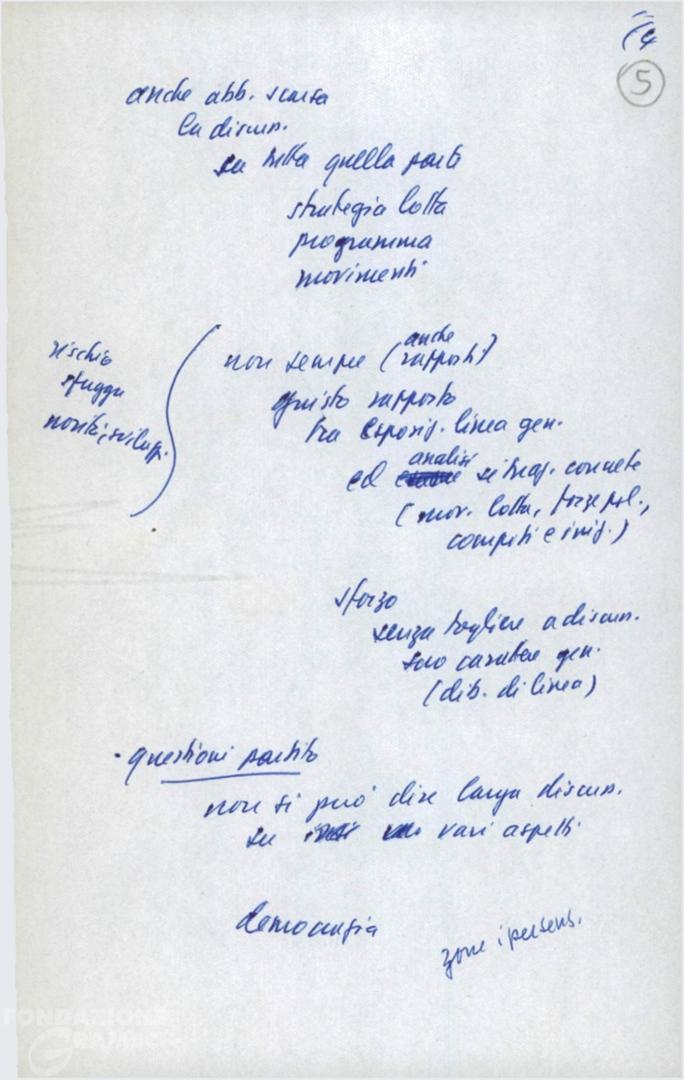 (4
5
anche abb. scarsa
la discuss.
su tutta quella parte
strategia lotta
programma
movimenti
rischio
sfugga
novità, svilupp.
non sempre (anche rapporti)
giusto rapporto
tra esposiz. linea gen.
ed analisi situaz. concrete
(mov. lotta, forze pol.,
compiti e iniz.)
sforzo
senza togliere a discuss.
suo carattere gen.
(dib. di linea)
· questioni partito
non si può dire larga discuss.
su vari aspetti
democrazia
zone ipersens.
FONDAZIONE
GRAMSCI